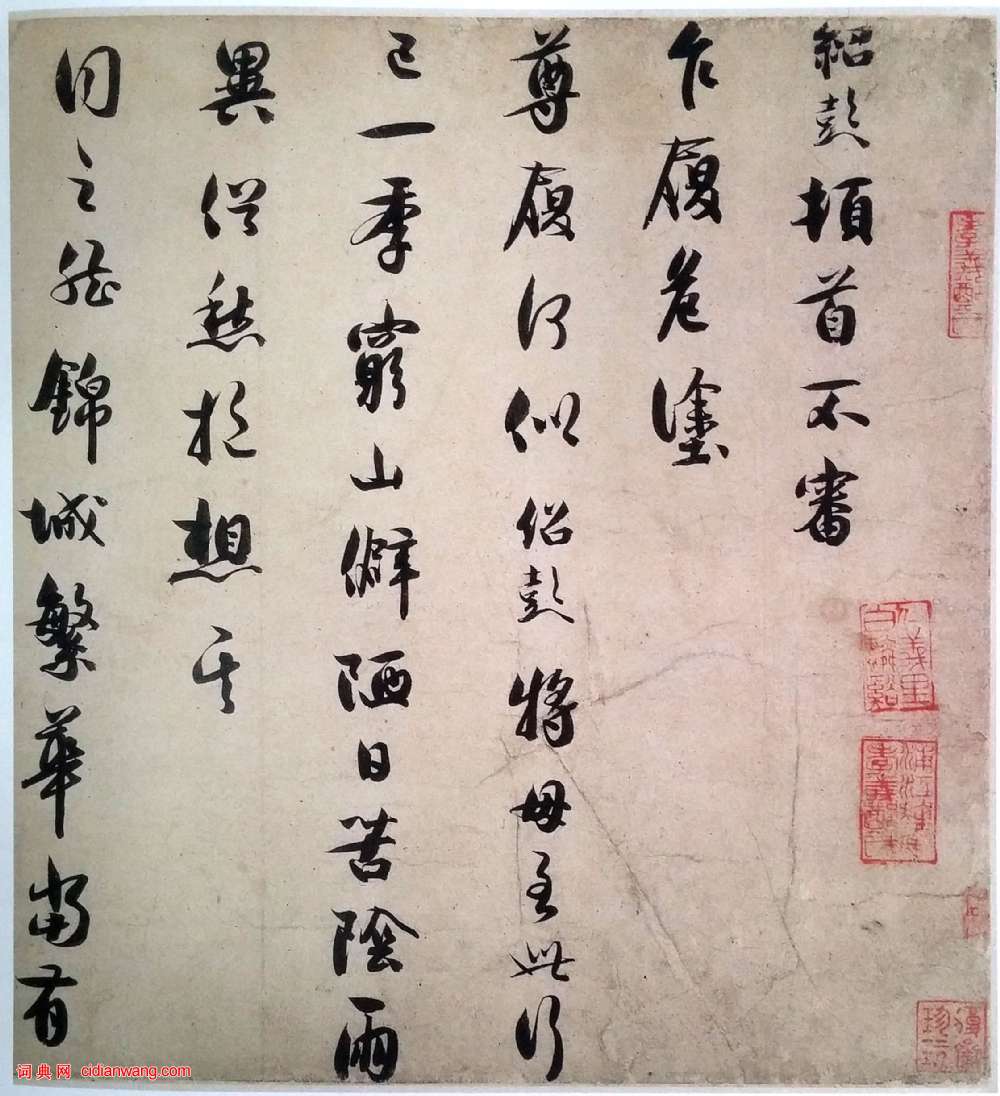 紹彭頓首不審
乍履危塗
尊履何似紹彭將母至此行
已一季窮山僻陋日苦陰雨
異俗愁抱想
同之雖錦城繁華當有
词典网 cidianwang.com